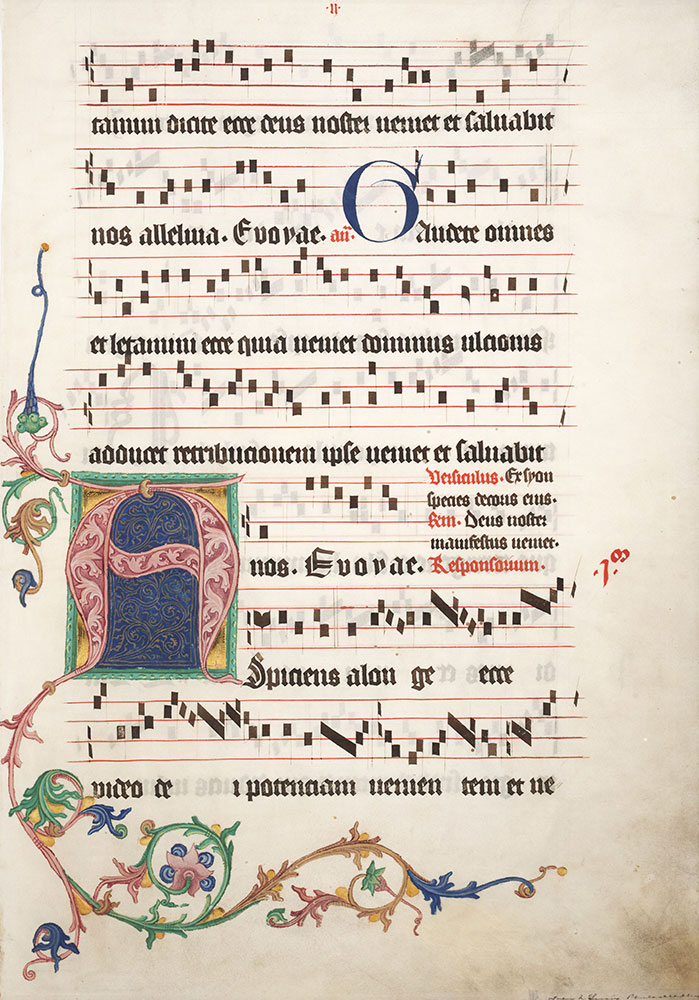 ·II·
tamini dicite ecce deus noster veniet et salvabit
nos alleluia. Evovae. añ. Gaudete omnes
et letamini ecce quia veniet dominus ulcionis
adducet retributionem ipse veniet et salvabit
Versiculus. Ex syon
species decoris eius.
Deus noster
manifestus veniet.
nos. Evovae. Responsorium.
Aspiciens a lon ge ecce
video de i potenciam venien tem et ne